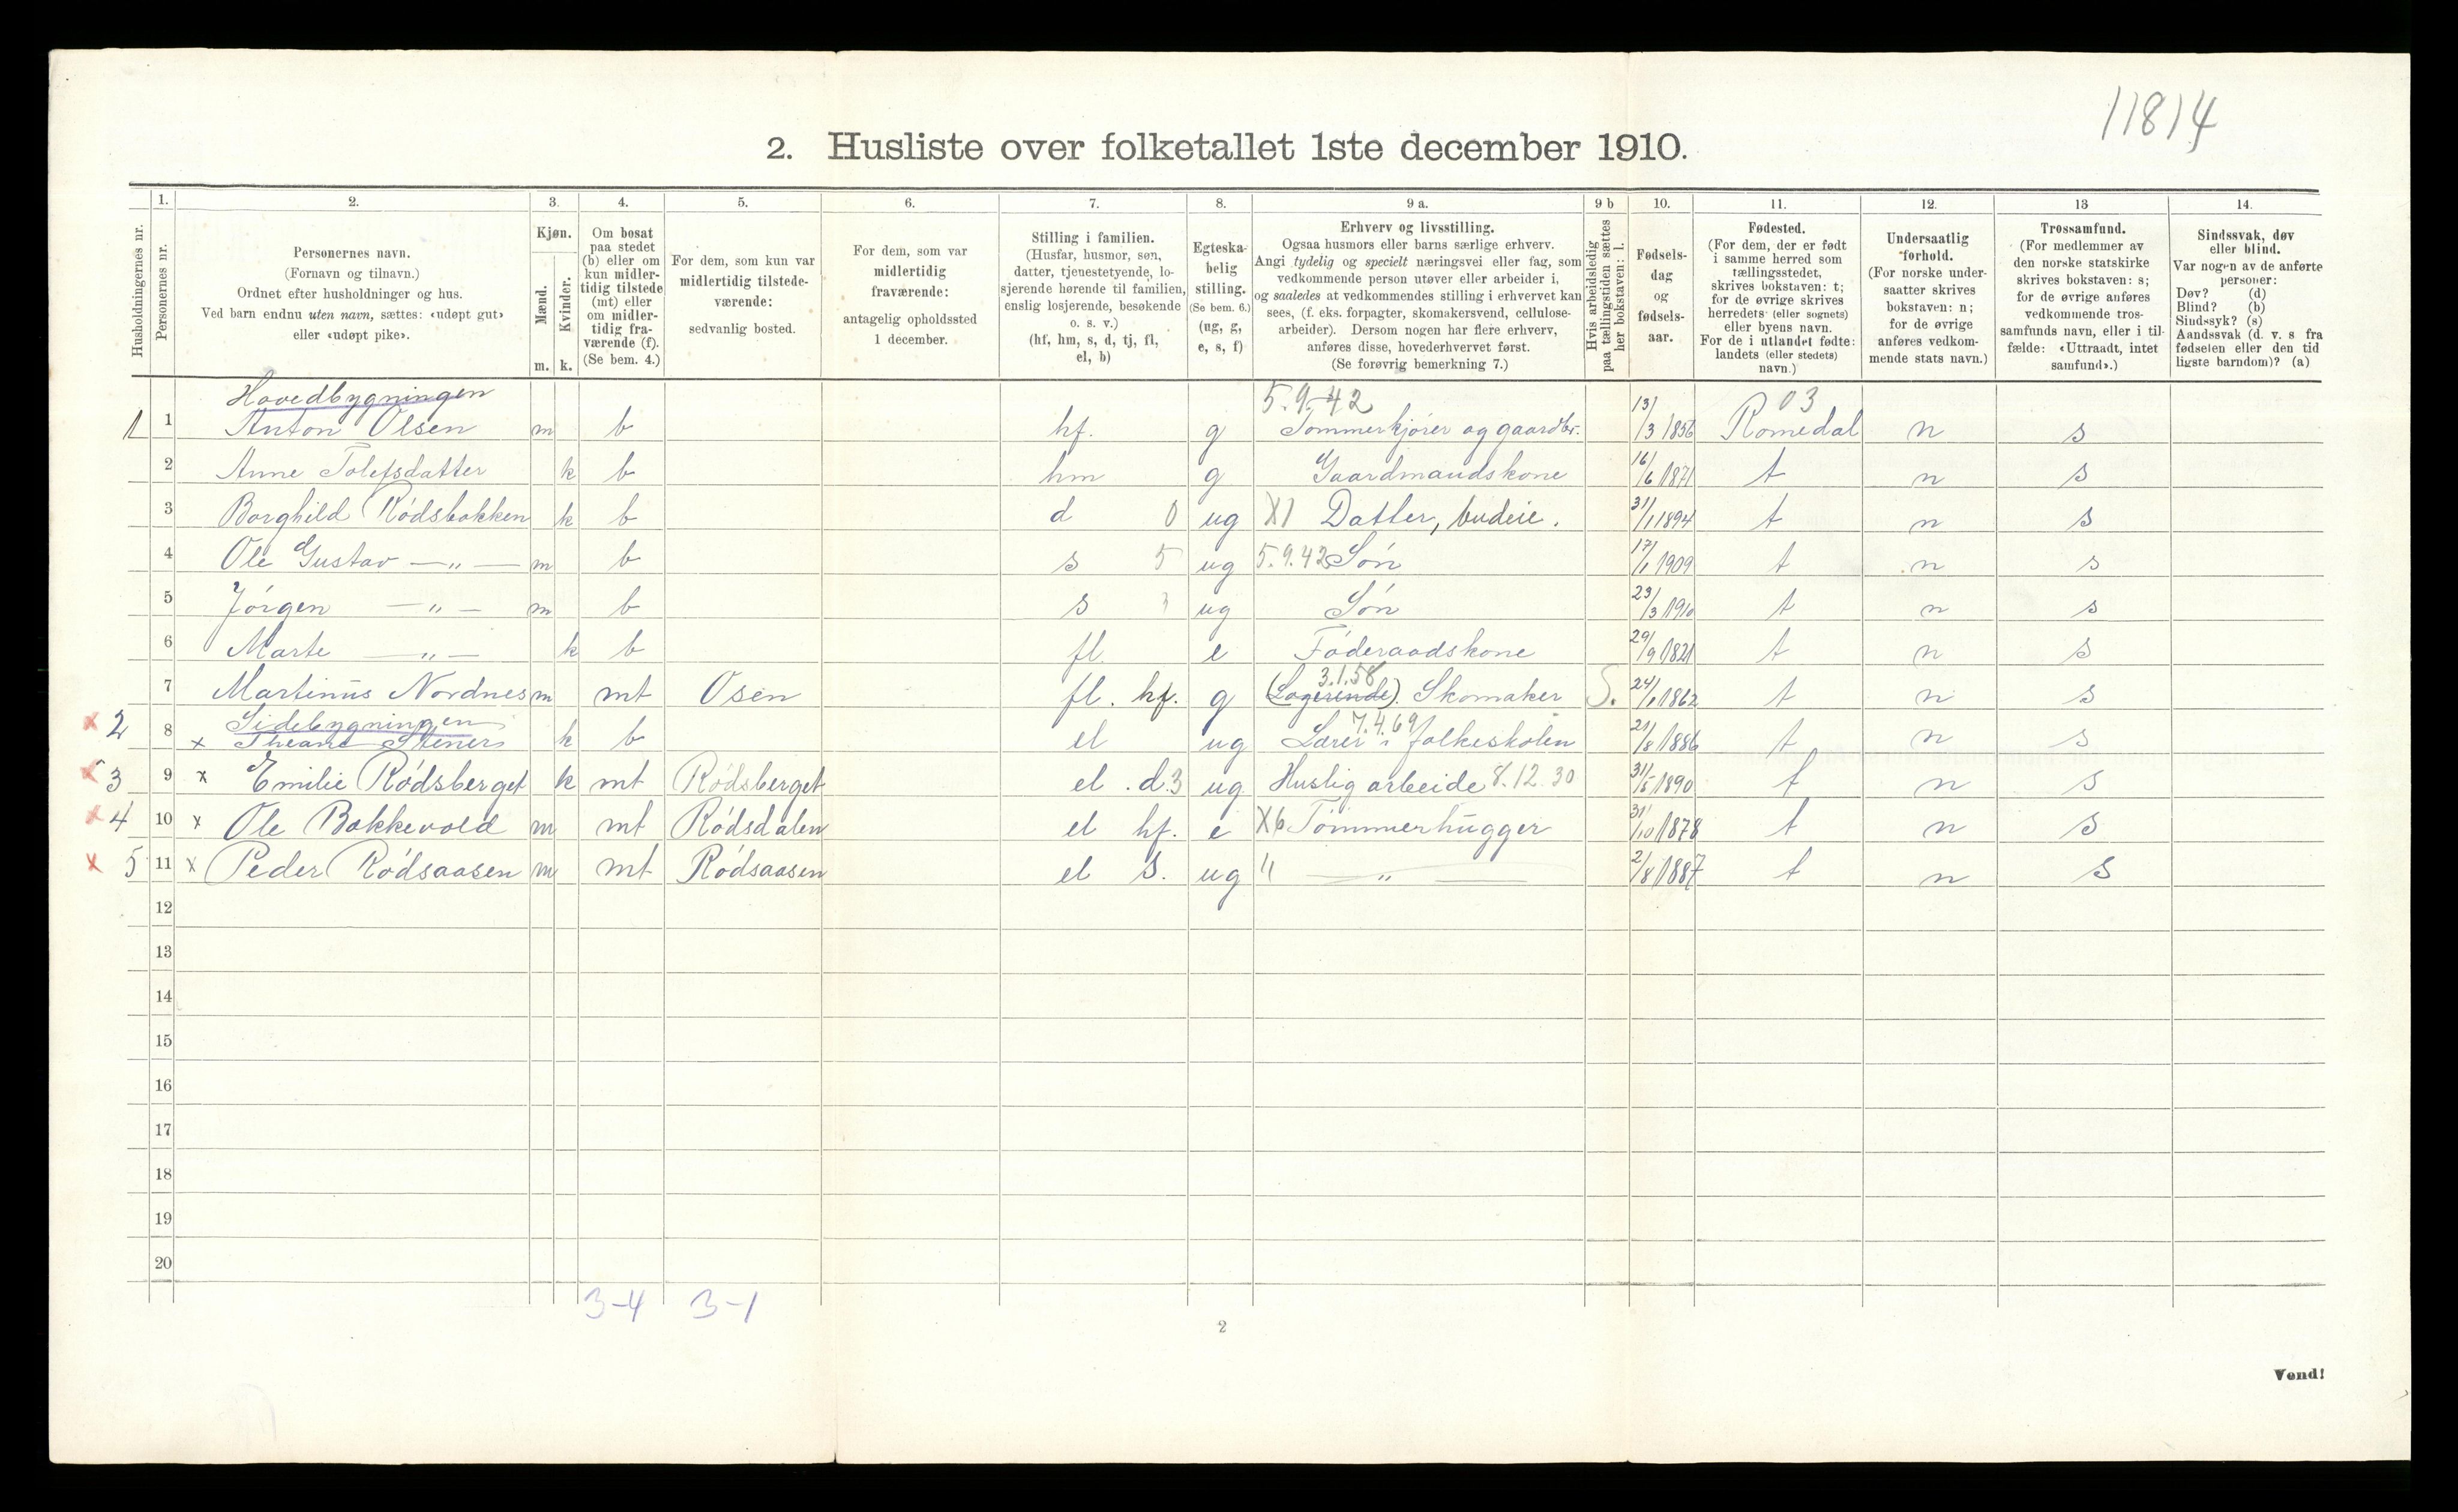 11814
2. Husliste over folketallet 1ste december 1910.
1. 2. 3. 4. 5. 6. 7. 8. 9 a. 9 b 10. 11. 12. 13 14.
Husholdningernes nr.
Personernes nr.
Personernes navn.
(Fornavn og tilnavn.)
Ordnet efter husholdninger og hus.
Ved barn endnu uten navn, sættes: «udøpt gut»
eller «udøpt pike».
Kjøn.
Mænd.
Kvinder.
m. k.
Om bosat
paa stedet
(b) eller om
kun midler-
tidig tilstede
(mt) eller
om midler-
tidig fra-
værende (f).
(Se bem. 4.)
For dem, som kun var
midlertidig tilstede-
værende:
sedvanlig bosted.
For dem, som var
midlertidig
fraværende:
antagelig opholdssted
1 december.
Stilling i familien.
(Husfar, husmor, søn,
datter, tjenestetyende, lo-
sjerende hørende til familien,
enslig losjerende, besøkende
o. s. v.)
(hf, hm, s, d, tj, fl,
el, b)
Egteska-
belig
stilling.
(Se bem. 6.)
(ug, g,
e, s, f)
Erhverv og livsstilling.
Ogsaa husmors eller barns særlige erhverv.
Angi tydelig og specielt næringsvei eller fag, som
vedkommende person utøver eller arbeider i,
og saaledes at vedkommendes stilling i erhvervet kan
sees, (f. eks. forpagter, skomakersvend, cellulose-
arbeider). Dersom nogen har flere erhverv,
anføres disse, hovederhvervet først.
(Se forøvrig bemerkning 7.)
Hvis arbeidsledig
paa tællingstiden sættes
her bokstaven: l.
Fødsels-
dag
og
fødsels-
aar.
Fødested.
(For dem, der er født
i samme herred som
tællingsstedet,
skrives bokstaven: t;
for de øvrige skrives
herredets (eller sognets)
eller byens navn.
For de i utlandet fødte:
landets (eller stedets)
navn.)
Undersaatlig
forhold.
(For norske under-
saatter skrives
bokstaven: n;
for de øvrige
anføres vedkom-
mende stats navn.)
Trossamfund.
(For medlemmer av
den norske statskirke
skrives bokstaven: s;
for de øvrige anføres
vedkommende tros-
samfunds navn, eller i til-
fælde: «Uttraadt, intet
samfund».)
Sindssvak, døv
eller blind.
Var nogen av de anførte
personer:
Døv? (d)
Blind? (b)
Sindssyk? (s)
Aandssvak (d. v. s fra
fødselen eller den tid
ligste barndom)? (a)
Hovedbygningen 5.9.42 03
1 1 Anton Olsen m b hf. g Tømmerkjører og gaardbr. 13/3 1856 Romedal n s
2 Anne Tolefsdatter k b hm g Gaardmandskone 16/6 1871 t n s
3 Borghild Rödsbakken k b d 0 ug X1 Datter, budeie. 31/1 1894 t n s
4 Ole Gustav —„— m b s 5 ug 5.9.42 Søn 17/1 1909 t n s
5 Jörgen —„— m b s ug Søn 23/3 1910 t n s
6 Marte —„— k b fl. e Føderaadskone 29/9 1821 t n s
3.1.58
7 Martinus Nordnes m mt Osen fl. hf. g (Logerende). Skomaker S. 24/1 1862 t n s
Sidebygningen 7.4.69
x 2 8 x Steners k b el ug Lærer i folkeskolen 21/8 1886 t n s
x 3 9 x Emilie Rødsberget k mt Rødsberget el. d. 3 ug Huslig arbeide 8.12.30 31/5 1890 t n s
x 4 10 x Ole Bakkevold m mt Rødsdalen el hf. e X6 Tømmerhugger 31/10 1878 t n s
x 5 11 x Peder Rødsaasen m mt Rødsaasen el s. ug " —„— 2/8 1887 t n s
12
13
14
15
16
17
18
19
20
3-4 3-1
2
Vend!